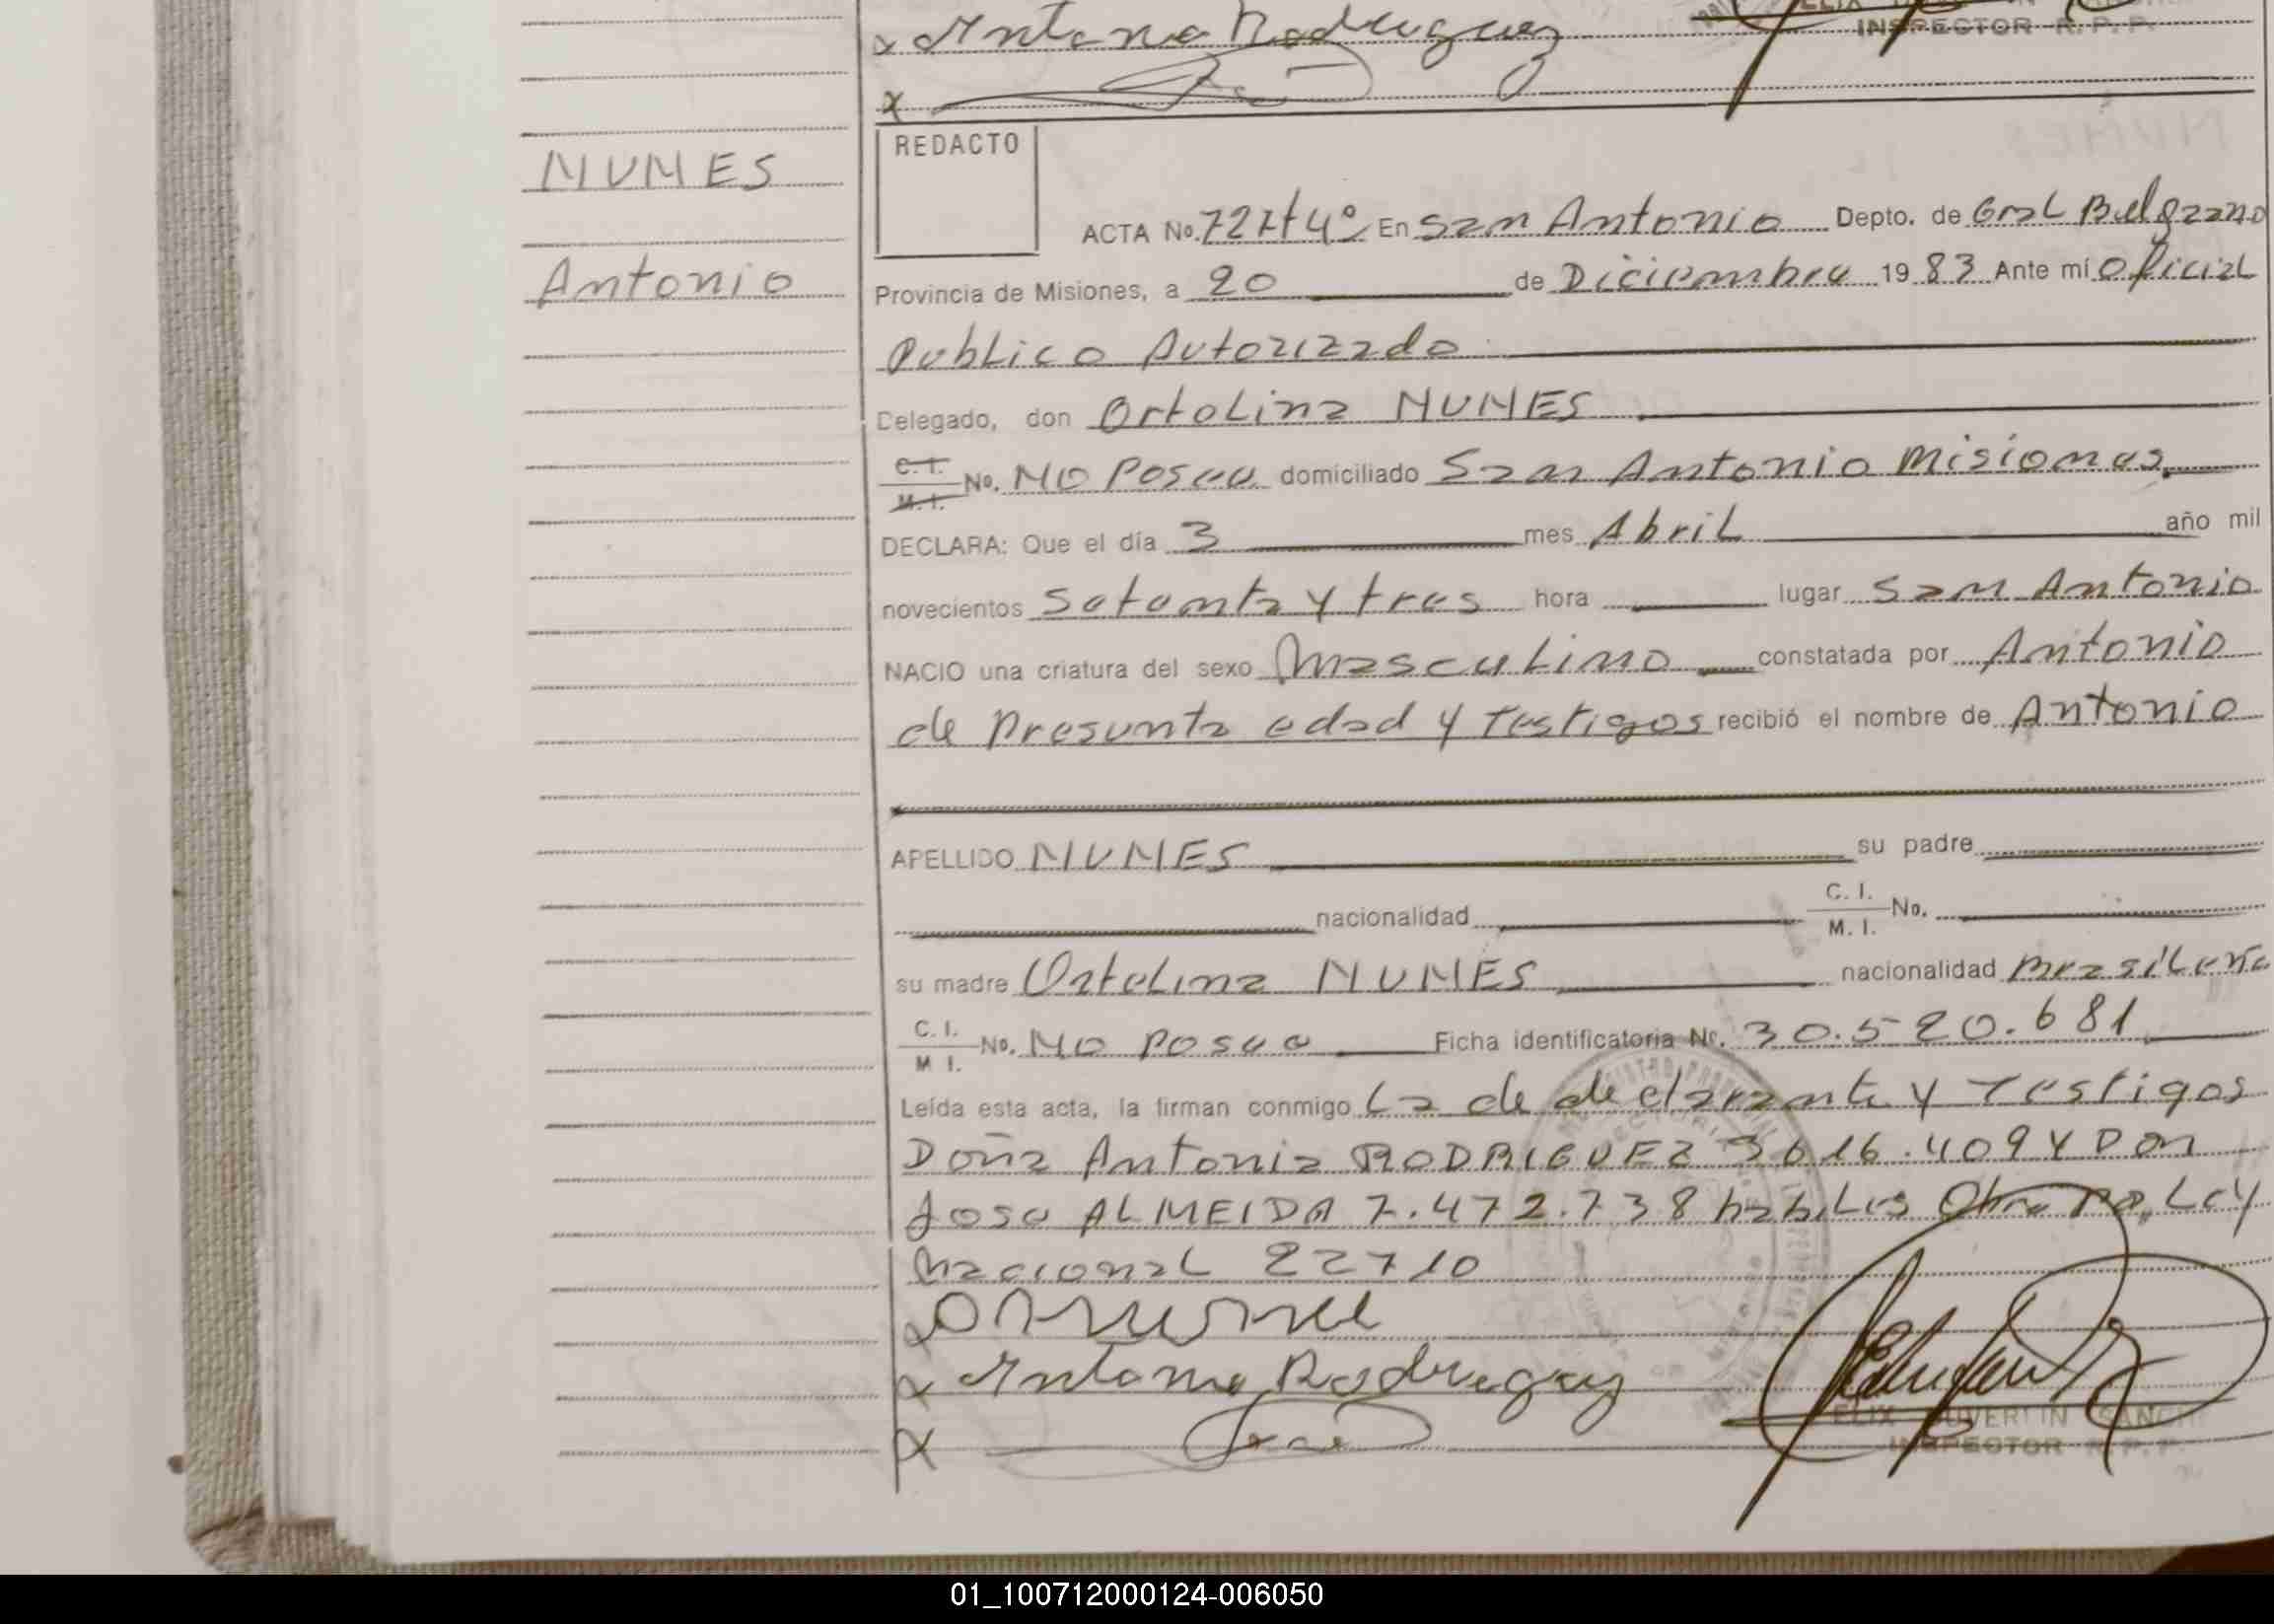 x Antonia Rodriguez
INSPECTOR R. P. P.
x
REDACTO
NUNES
Antonio
ACTA No. 727 t4º En San Antonio Depto. de Gral Belgrano
Provincia de Misiones, a 20 de Diciembre 1983 Ante mí Oficial
Publico Autorizado
Delegado, don Ortolina NUNES
C. I. M. I. No. NO Posee domiciliado San Antonio Misiones
DECLARA: Que el día 3 mes Abril año mil
novecientos Setenta y tres hora lugar San Antonio
NACIO una criatura del sexo Masculino constatada por Antonio
de Presunta edad y Testigos recibió el nombre de Antonio
APELLIDO NUNES su padre
nacionalidad C. I. M. I. No.
su madre Ortolina NUNES nacionalidad Brasileña
C. I. M I. No. NO Posee Ficha identificatoria Nº. 30.520.681
Leída esta acta, la firman conmigo La de declarante y Testigos
Doña Antonia RODRIGUEZ 3616.409 Y Don
Jose ALMEIDA 7.472.738 habiles Obra Ley
Nacional 22710
x
x Antonia Rodriguez
x
FELIX SANCH
INSPECTOR R. P. P.
01_100712000124-006050